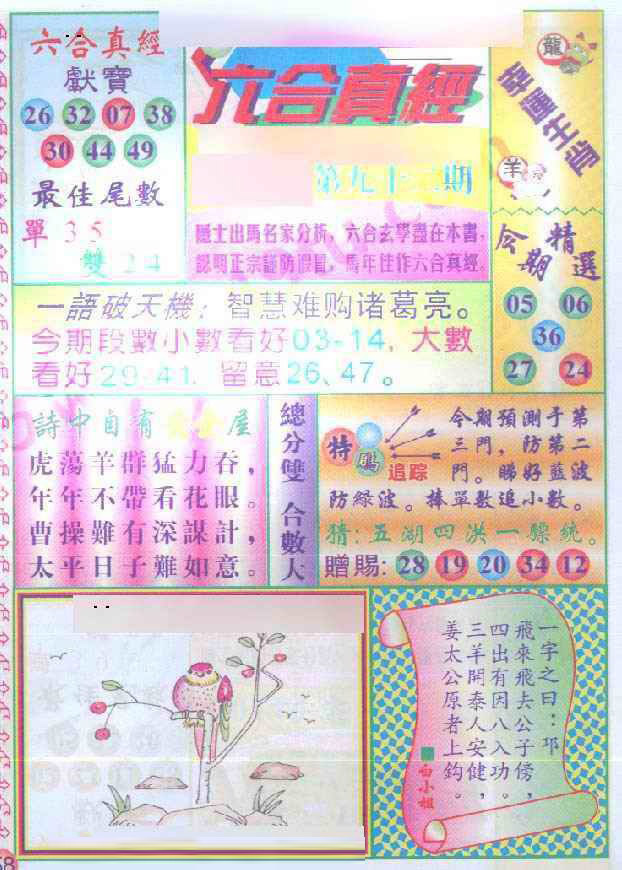 六合真經
獻寶
26 32 07 38
30 44 49
最佳尾數
單 35
雙 24
六合真經
第九十二期
隱士出馬名家分析,六合玄學盡在本書,
認明正宗謹防假冒,馬年佳作六合真經。
龍
幸運生肖
羊
今期精選
05 06
36
27 24
一語破天機:智慧难购诸葛亮。
今期段數小數看好03-14,大數
看好29-41,留意26、47。
詩中自有黃金屋
虎蕩羊群猛力吞,
年年不帶看花眼。
曹操難有深謀計,
太平日子難如意。
總分雙 合數大
特 碼 追踪
今期預測于第
三門,防第二
門。睇好藍波
防綠波。棒單數追小數。
猜:五湖四洪一騾統。
贈賜: 28 19 20 34 12
一字之曰:邛
飛來飛去公子傍,
四出有因八入功。
三羊開泰人安健,
姜太公原者上鈎。
白小姐
58